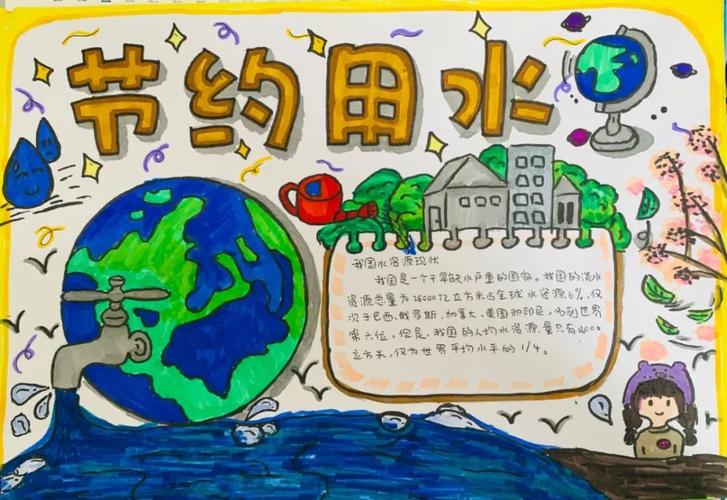 节约用水
我国水资源现状
我国是一个干旱缺水严重的国家。我国的淡水
资源总量为28000亿立方米占全球水资源6%,仅
次于巴西、俄罗斯、加拿大、美国和印尼,名列世界
第六位。但是,我国的人均水资源量只有
立方米,仅为世界平均水平的1/4。